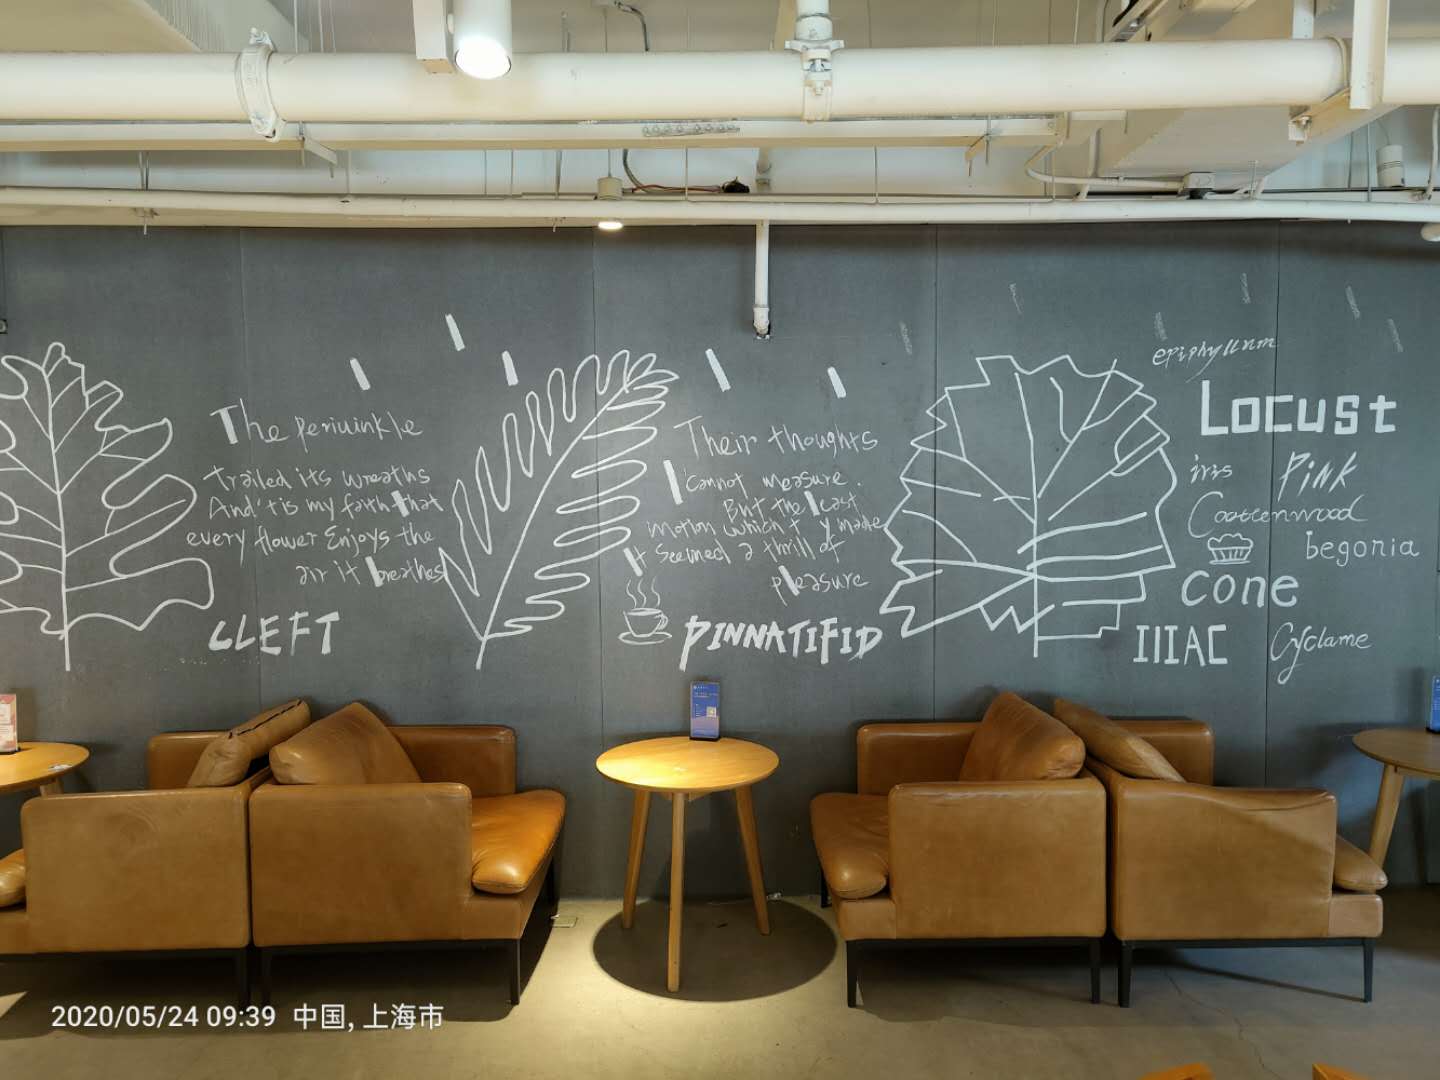 The periuinkle
trailed its wreaths
And'tis my faith that
every flower Enjoys the
air it breathes
CLEFT
Their thoughts
I cannot measure.
But the least
Motion which t y made
it seemed a thrill of
pleasure
PINNATIFID
epiphyllnm
Locust
iris
Pink
Coottenwood
begonia
cone
IIIAC
Cyclame
2020/05/24 09:39 中国, 上海市